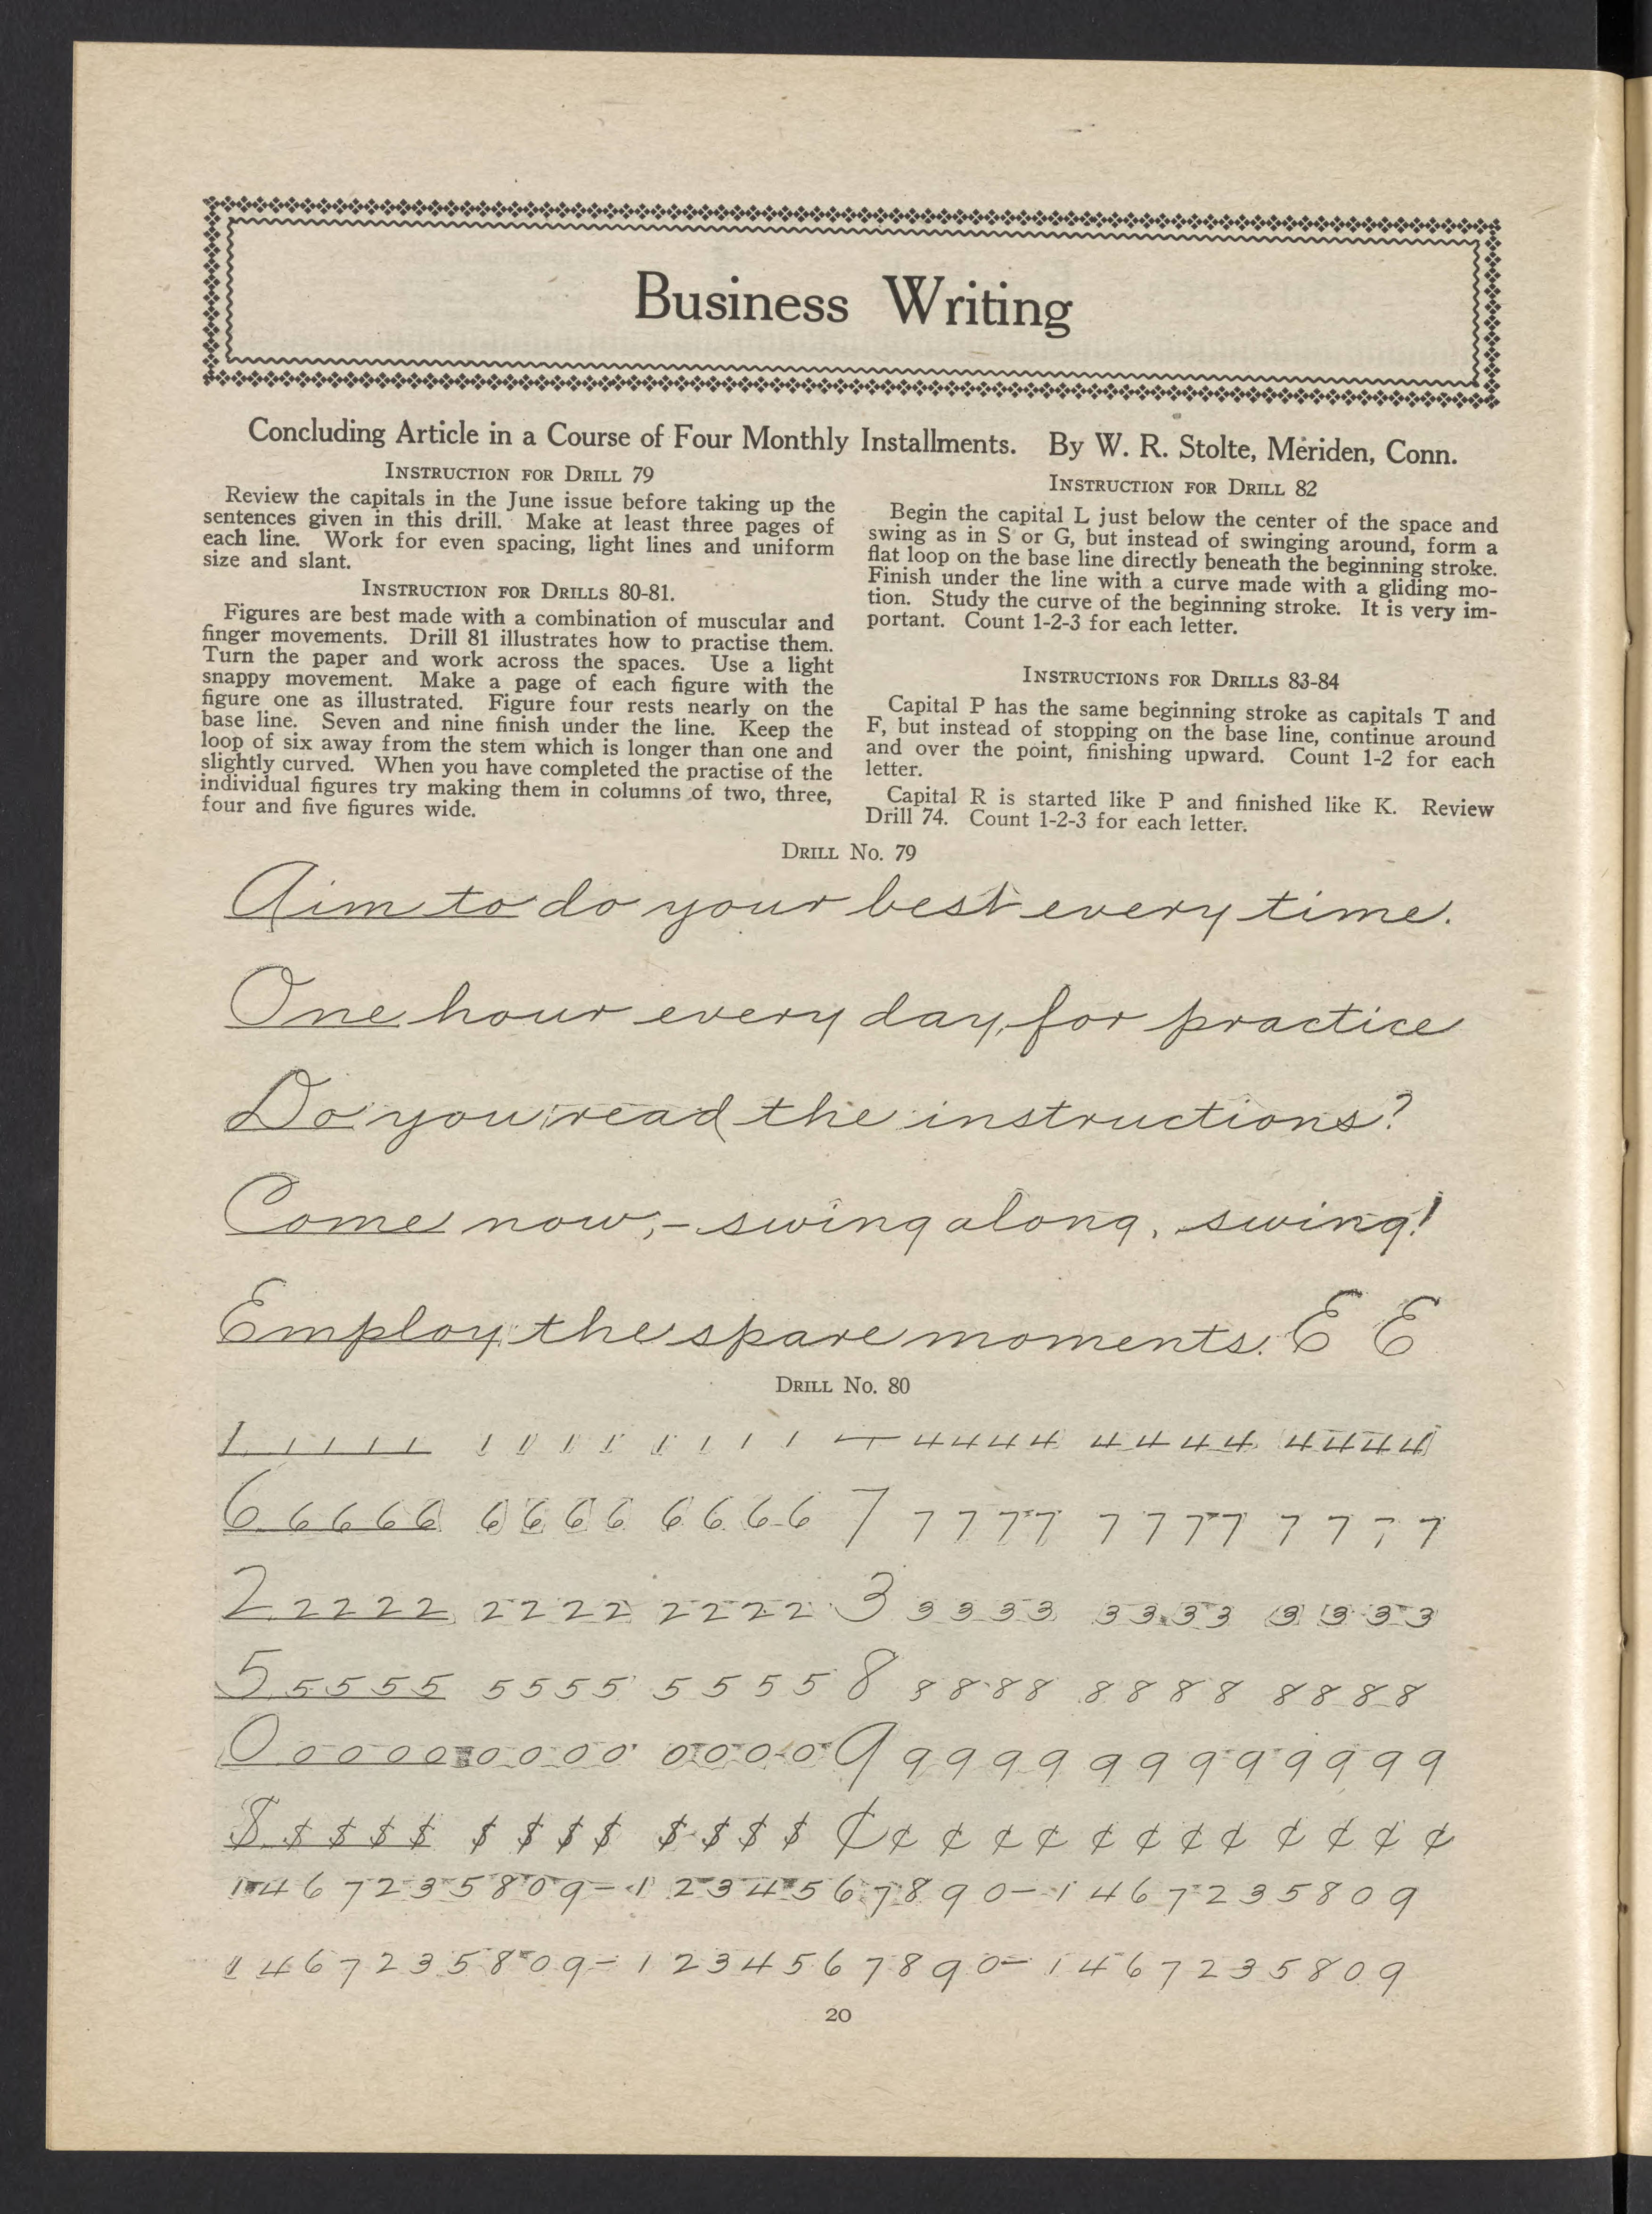 Business Writing
Concluding Article in a Course of Four Monthly Installments. By W. R. Stolte, Meriden, Conn.
Instruction for Drill 79
Review the capitals in the June issue before taking up the
sentences given in this drill. Make at least three pages of
each line. Work for even spacing, light lines and uniform
size and slant.
Instruction for Drills 80-81.
Figures are best made with a combination of muscular and
finger movements. Drill 81 illustrates how to practise them.
Turn the paper and work across the spaces. Use a light
snappy movement. Make a page of each figure with the
figure one as illustrated. Figure four rests nearly on the
base line. Seven and nine finish under the line. Keep the
loop of six away from the stem which is longer than one and
slightly curved. When you have completed the practise of the
individual figures try making them in columns of two, three,
four and five figures wide.
Instruction for Drill 82
Begin the capital L just below the center of the space and
swing as in S or G, but instead of swinging around, form a
flat loop on the base line directly beneath the beginning stroke.
Finish under the line with a curve made with a gliding mo-
tion. Study the curve of the beginning stroke. It is very im-
portant. Count 1-2-3 for each letter.
Instructions for Drills 83-84
Capital P has the same beginning stroke as capitals T and
F, but instead of stopping on the base line, continue around
and over the point, finishing upward. Count 1-2 for each
letter.
Capital R is started like P and finished like K. Review
Drill 74. Count 1-2-3 for each letter.
Drill No. 79
Aim to do your best every time.
One hour every day, for practice
Do you read the instructions?
Come now,- swing along, swing!
Employ the spare moments. E E
Drill No. 80
1 1 1 1 1 1 1 1 1 1 1 1 1 — 4 4 4 4 4 4 4 4 4 4 4 4
6 6 6 6 6 6 6 6 6 6 6 6 6 7 7 7 7 7 7 7 7 7 7 7 7 7
2 2 2 2 2 2 2 2 2 2 2 2 2 3 3 3 3 3 3 3 3 3 3 3 3 3
5 5 5 5 5 5 5 5 5 5 5 5 5 8 8 8 8 8 8 8 8 8 8 8 8 8
0 0 0 0 0 0 0 0 0 0 0 0 0 9 9 9 9 9 9 9 9 9 9 9 9 9
$ $ $ $ $ $ $ $ $ $ $ $ $ ¢ ¢ ¢ ¢ ¢ ¢ ¢ ¢ ¢ ¢ ¢ ¢ ¢
1 4 6 7 2 3 5 8 0 9 – 1 2 3 4 5 6 7 8 9 0 – 1 4 6 7 2 3 5 8 0 9
1 4 6 7 2 3 5 8 0 9 – 1 2 3 4 5 6 7 8 9 0 – 1 4 6 7 2 3 5 8 0 9
20